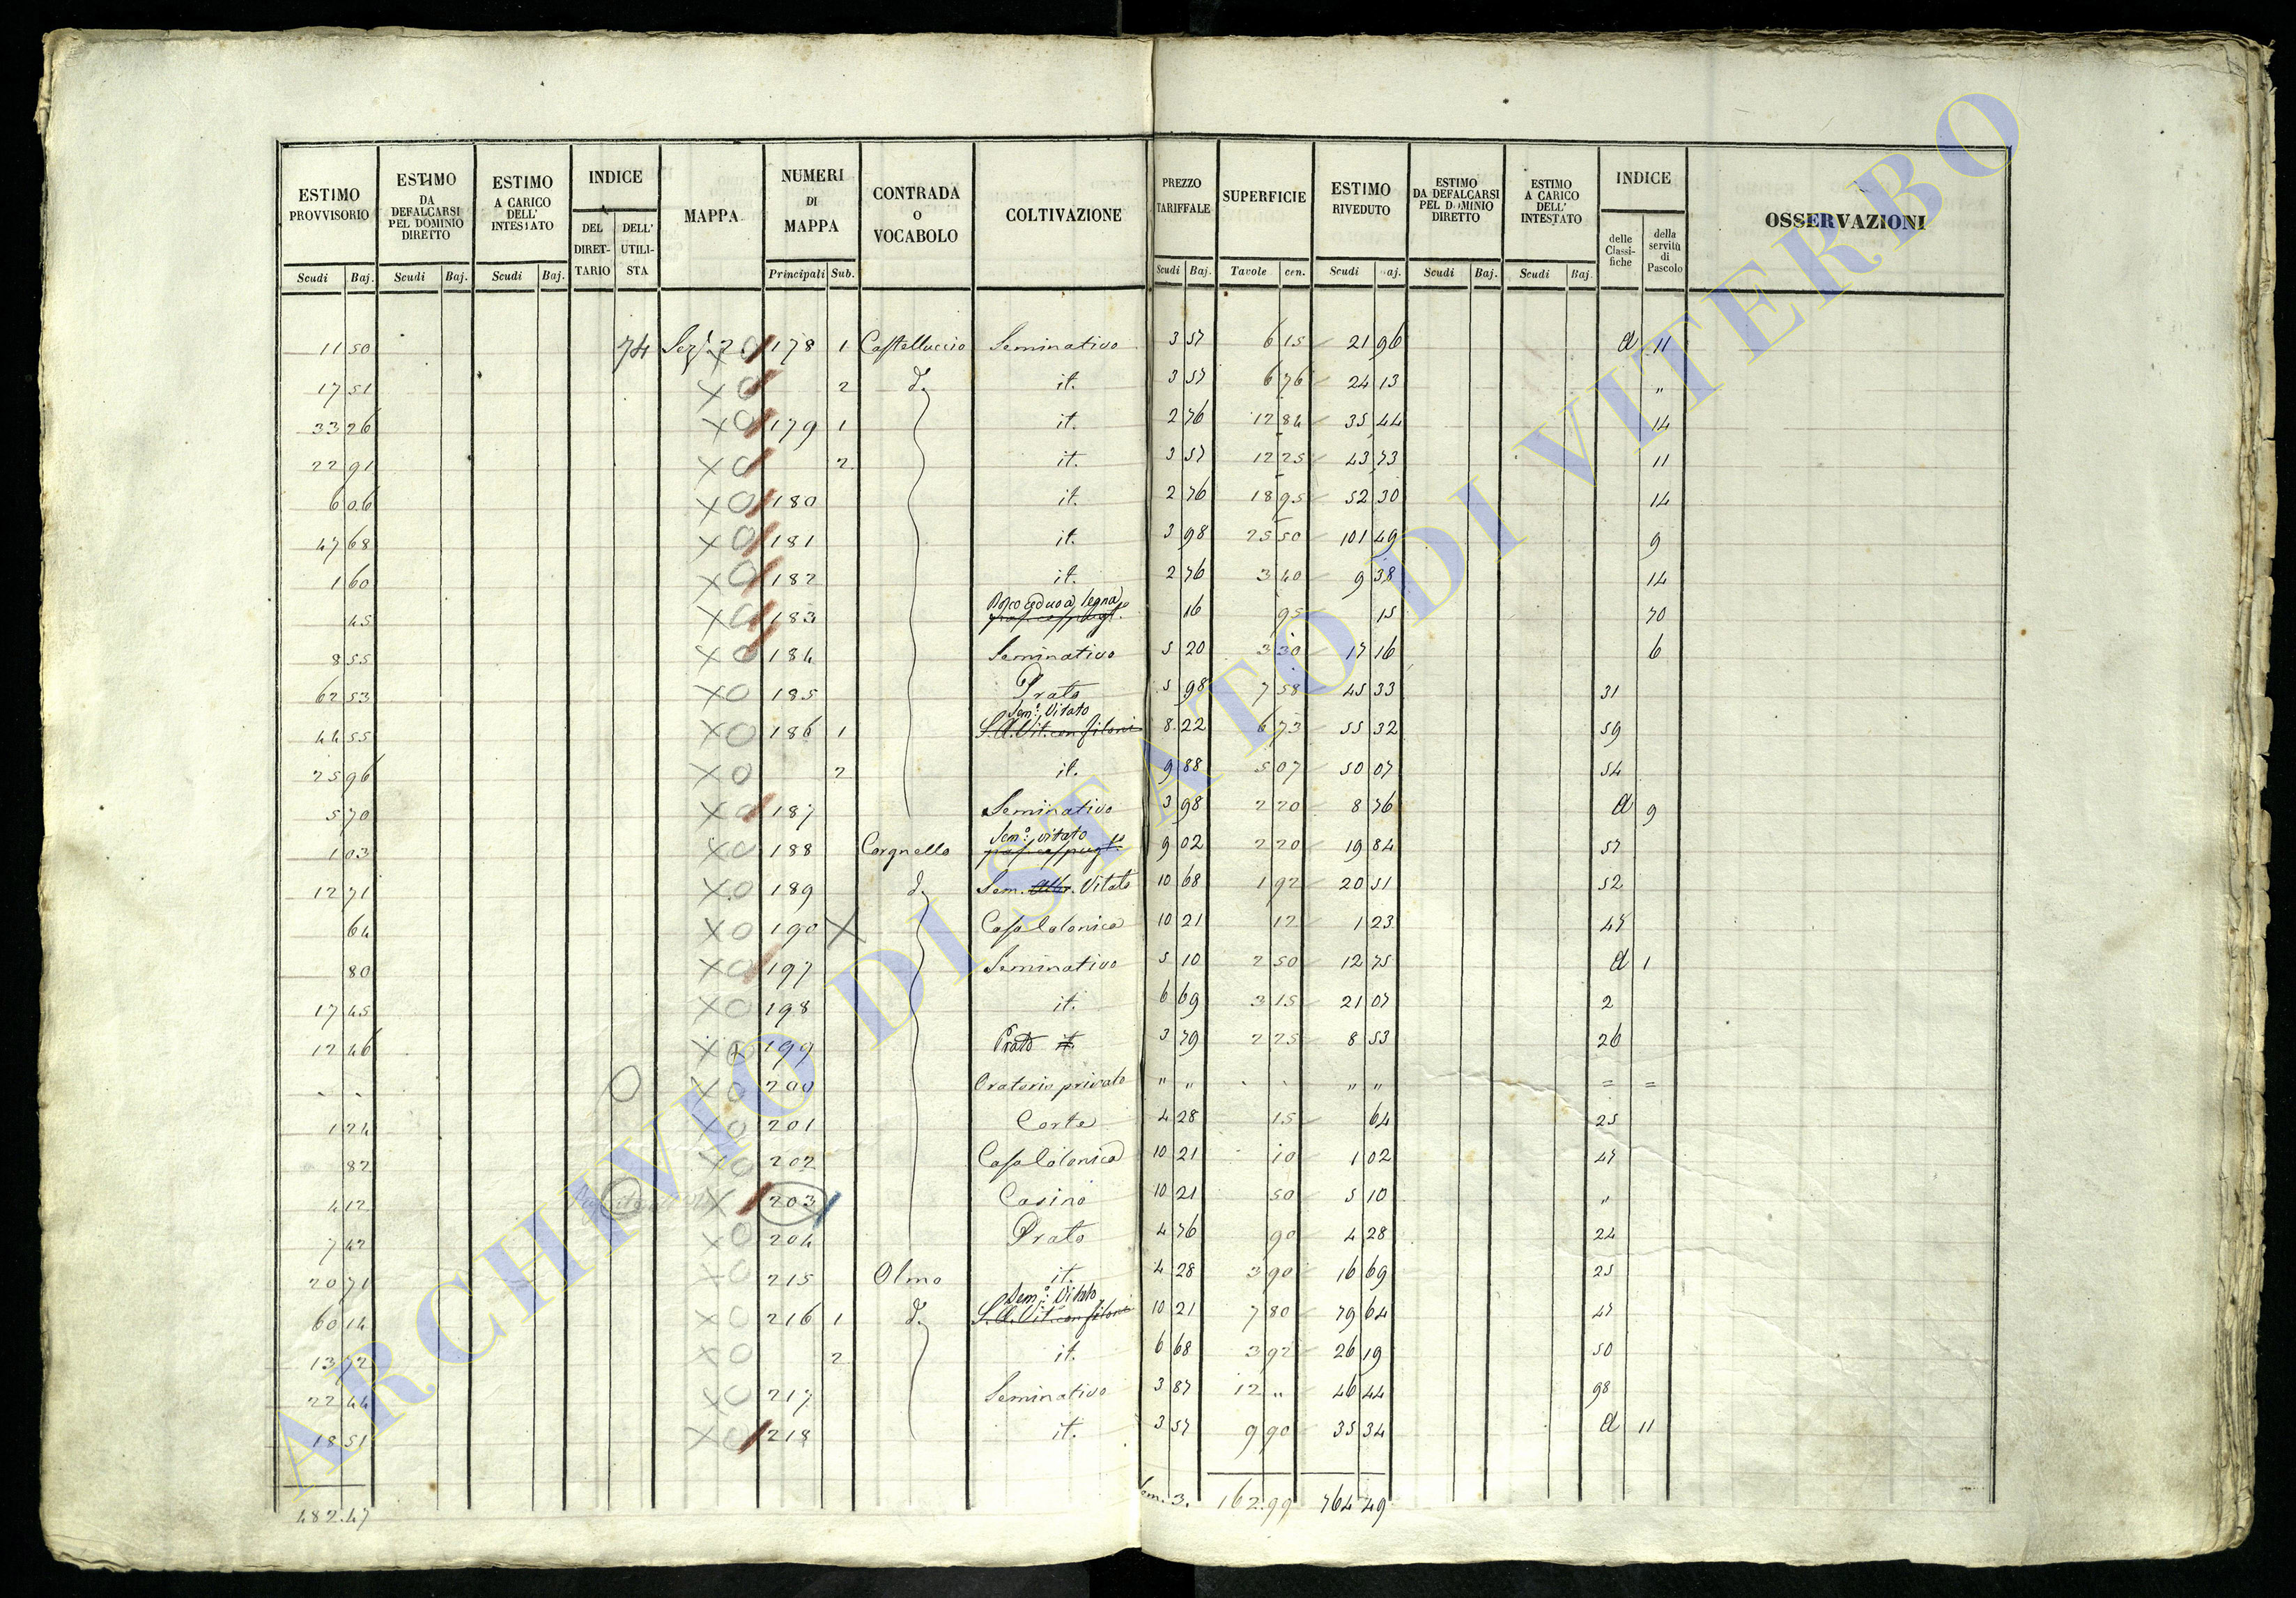 ESTIMO PROVVISORIO | ESTIMO DA DEFALCARSI PEL DOMINIO DIRETTO | ESTIMO A CARICO DELL' INTESTATO | INDICE DEL DIRETTARIO | DELL' UTILISTA | MAPPA | NUMERI DI MAPPA | CONTRADA O VOCABOLO | COLTIVAZIONE | PREZZO TARIFFALE | SUPERFICIE | ESTIMO RIVEDUTO | ESTIMO DA DEFALCARSI PEL DOMINIO DIRETTO | ESTIMO A CARICO DELL' INTESTATO | INDICE delle Classifiche | della servitù di Pascolo | OSSERVAZIONI
Scudi Baj. | Scudi Baj. | Scudi Baj. | Principali Sub. | Scudi Baj. | Tavole cen. | Scudi aj. | Scudi Baj. | Scudi Baj.
11 50 74 Sez. 178 1 Castelluccio Seminativo 3 57 6 15 21 96 a 11
17 51 2 d. it. 3 57 6 76 24 13 "
33 26 179 1 it. 2 76 12 84 35 44 14
22 91 2 it. 3 57 12 25 43 73 11
6 06 180 it. 2 76 18 95 52 30 14
47 68 181 it. 3 98 25 50 101 49 9
1 60 182 it. 2 76 3 40 9 38 14
45 183 Bosco ceduo a legna 16 95 15 70
8 55 184 Seminativo 5 20 3 30 17 16 6
62 53 185 Prato 5 98 7 58 45 33 31
Sem.º Vitato
44 55 186 1 S. A. Vit. con filoni 8 22 6 73 55 32 59
25 96 2 it. 9 88 5 07 50 07 54
5 70 187 Seminativo 3 98 2 20 8 76 a 9
Sem.º vitato
1 03 188 Corgnello 9 02 2 20 19 84 57
12 71 189 d. Sem. Alb. Vitato 10 68 1 92 20 51 52
64 190 X Casa Colonica 10 21 12 1 23 47
80 197 Seminativo 5 10 2 50 12 75 a 1
17 45 198 it. 6 69 3 15 21 07 2
12 46 199 Prato it. 3 79 2 25 8 53 26
200 Oratorio privato " " " " = =
1 24 201 Corte 4 28 15 64 25
82 202 Casa Colonica 10 21 10 1 02 47
4 12 203 Casino 10 21 50 5 10 "
7 42 204 Prato 4 76 90 4 28 24
20 71 215 Olmo it. 4 28 3 90 16 69 25
Sem.º Vitato
60 14 216 1 d. S. A. Vit. con filoni 10 21 7 80 79 64 47
13 72 2 it. 6 68 3 92 26 19 50
22 44 217 Seminativo 3 87 12 " 46 44 98
18 51 218 it. 3 57 9 90 35 34 a 11
482.47 3. 162.99 764 49
ARCHIVIO DI STATO DI VITERBO